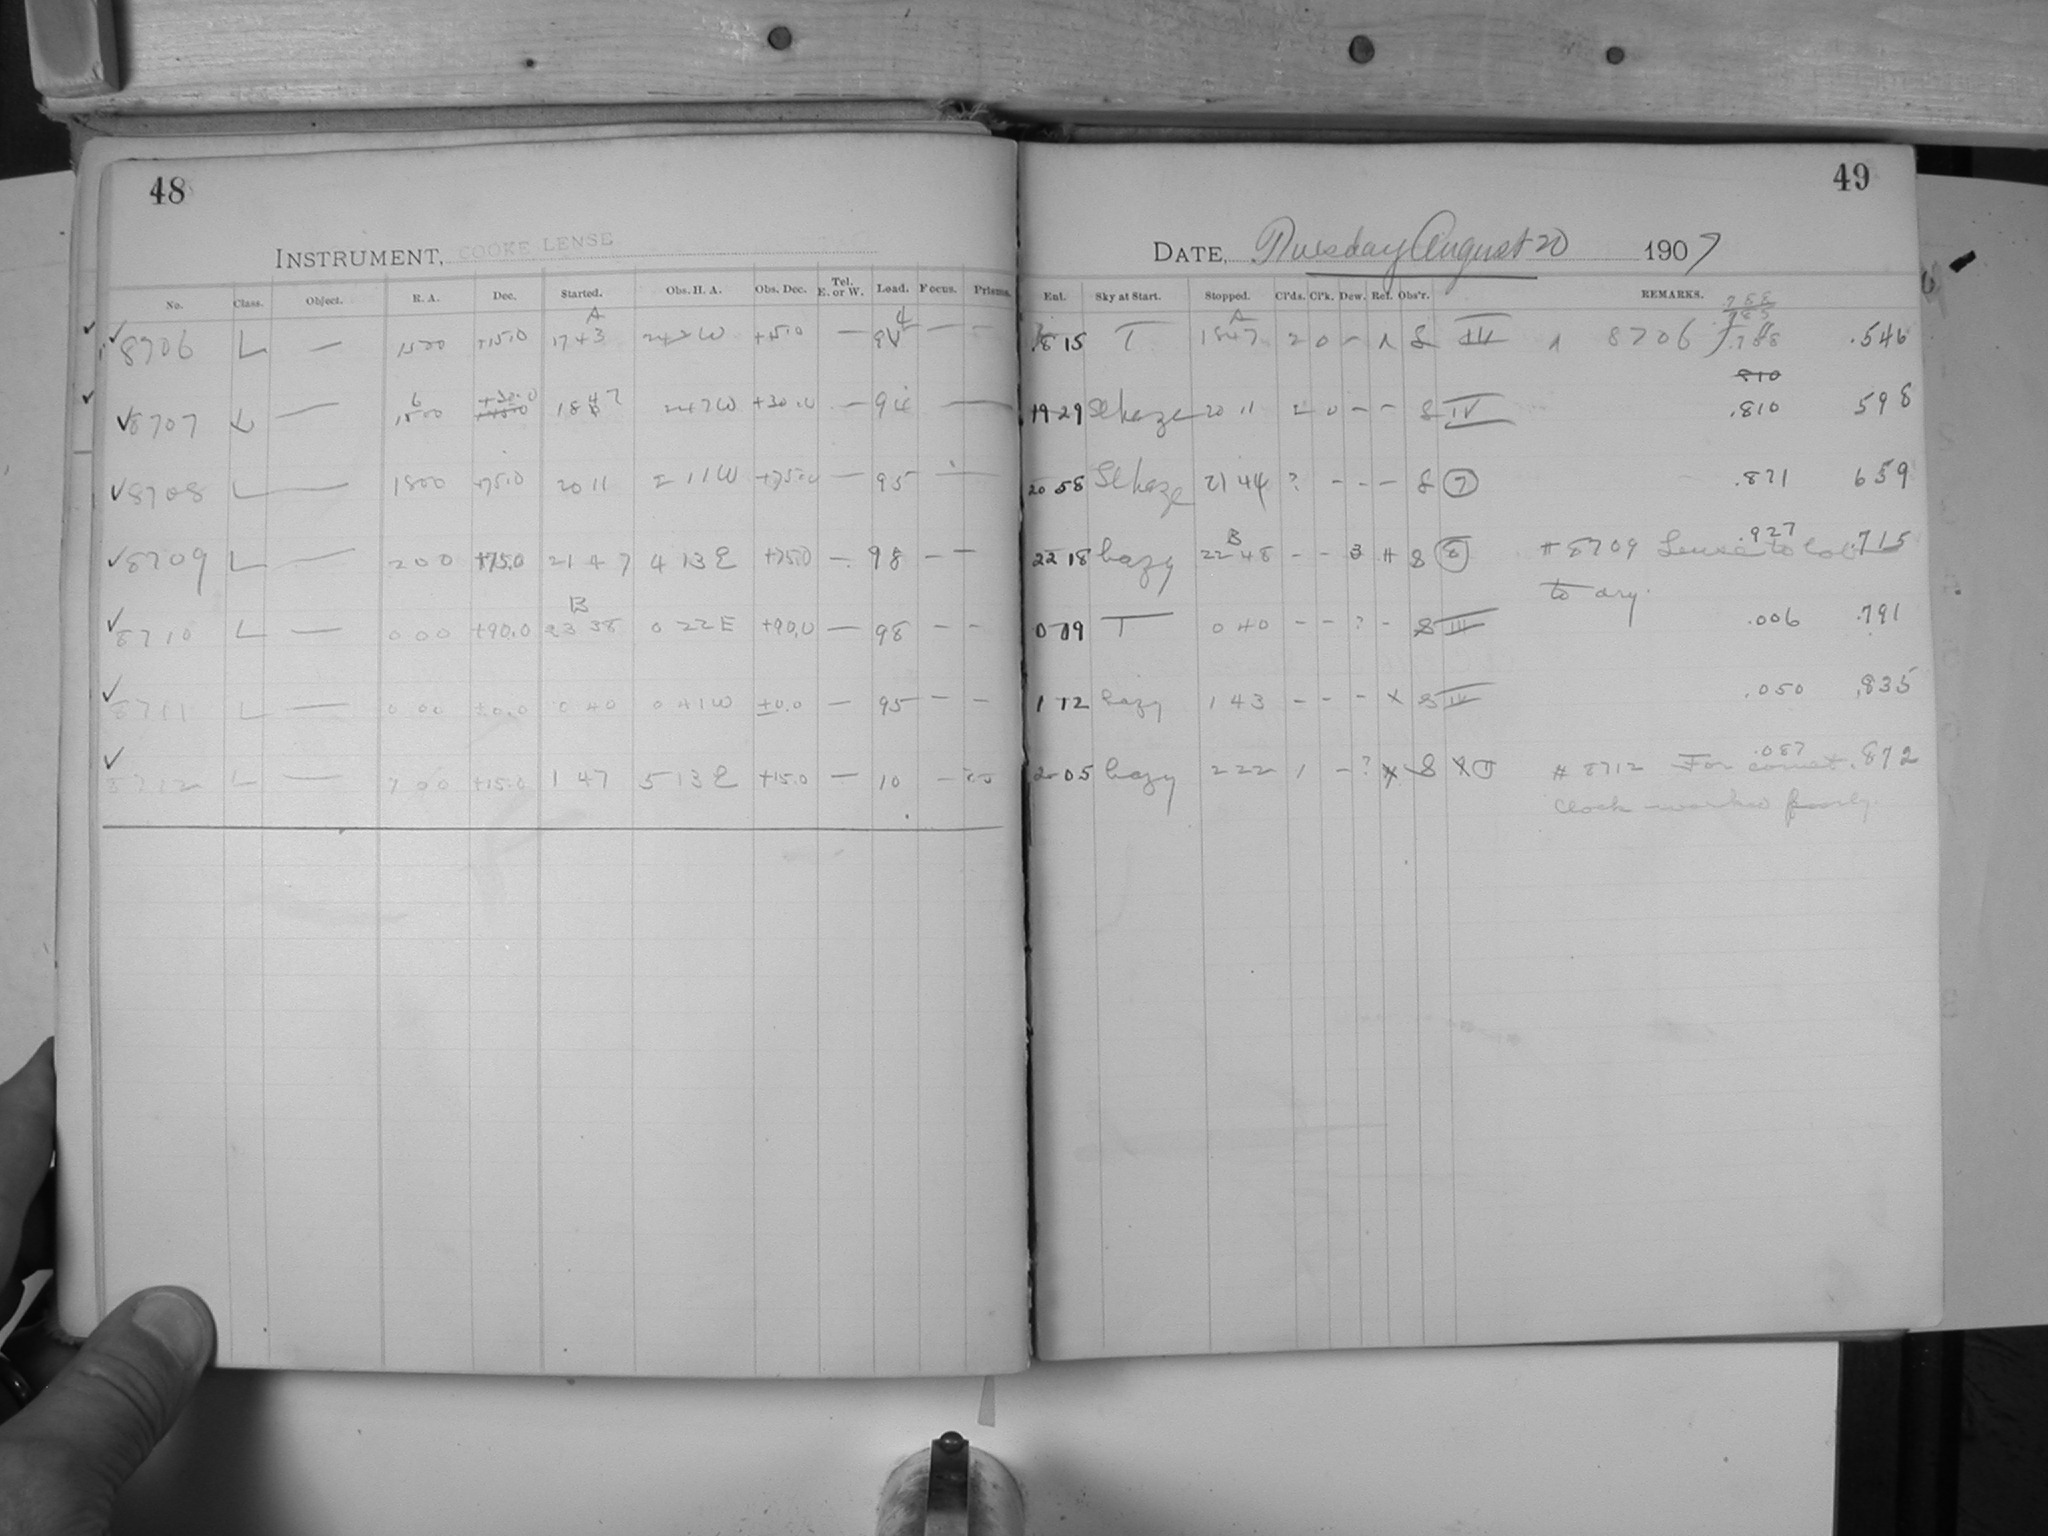 48
INSTRUMENT, COOKE LENSE
No. Class. Object. R. A. Dec. Started. Obs. H. A. Obs. Dec. Tel. E. or W. Load. Focus. Prisms.
A
8706 L — 1500 +15.0 1743 242W +15.0 —
8707 L — +30.0 18 47 247W +30.0 — 94 —
8708 L — 1800 +75.0 20 11 211W +75.0 — 95 —
8709 L — 200 +75.0 21 47 4 13E +75.0 — 98 — —
B
8710 L — 000 +90.0 23 38 0 22E +90.0 — 98 — —
8711 L — 0 00 ±0.0 0 40 0 41W ±0.0 — 95 — —
8712 L — 700 +15.0 1 47 5 13E +15.0 — 10 —
49
DATE, Tuesday August 20 1907
Ent. Sky at Start. Stopped. Cl'ds. Cl'k. Dew. Ref. Obs'r. REMARKS.
A
1815 T 1847 2 0 – S III 8706 .788 .546
810
19 29 Sl haze 20 11 2 0 – – S IV .810 598
20 58 Sl haze 21 44 ? – – – S 7 .871 659
B
22 18 hazy 22 48 – – 3 # S 8 # 8709 Lense to .927 .715
to dry.
0 19 T 0 40 – – ? – S III .006 .791
1 12 hazy 1 43 – – – x S IV .050 .835
2 05 hazy 2 22 1 – ? x S # 8712 For comet .087 .872
Clock worked poorly.